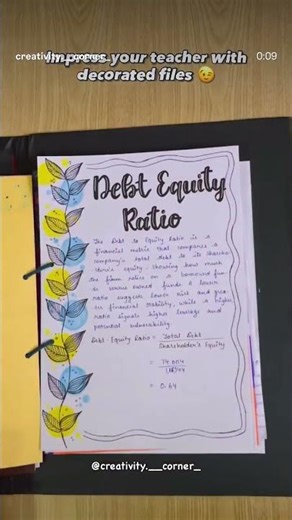 creativity.__corner_
0:09
Impress your teacher with
decorated files 😉
Debt Equity
Ratio
The Debt to Equity Ratio is a
financial metric that compares a
company's total debt to its shareho-
lders equity. Showing how much
the firm relies on borrowed fun-
ds versus owned funds. A lower
ratio suggest lower risk and
financial stability, while a higher
ratio signals higher leverage and
potential vulnerability.
Debt-Equity Ratio = Total Debt
Shareholder's Equity
=
= 0.64
@creativity.__corner_